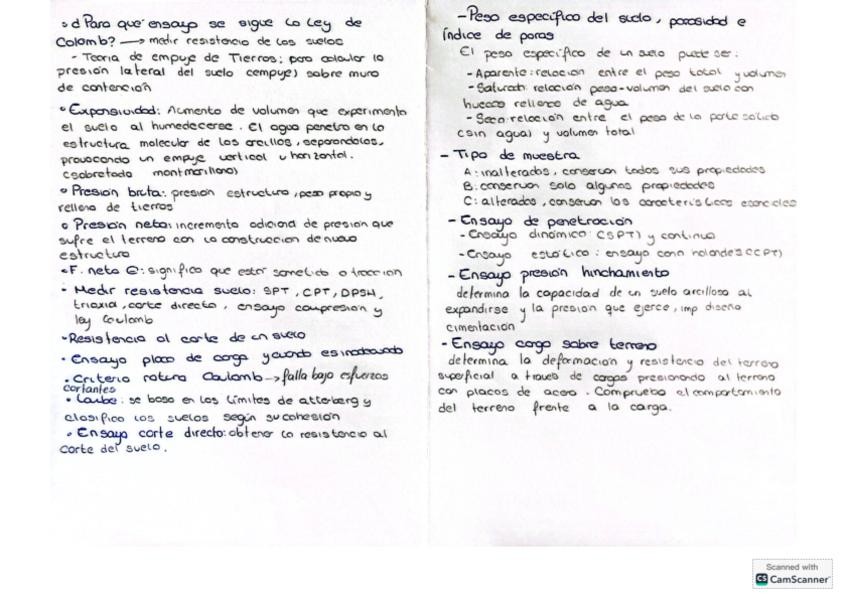 • d Para que ensayo se sigue la ley de
Colomb? → medir resistencia de los suelos
- Teoria de empuje de Tierras: para calcular la
presión lateral del suelo (empuje) sobre muro
de contención
• Expansividad: Aumento de volumen que experimenta
el suelo al humedecerse. El agua penetra en la
estructura molecular de las arcillas, separandolas,
provocando un empuje vertical u horizontal.
(sobretodo montmorillonas)
• Presión bruta: presión estructura, peso propio y
relleno de tierras
• Presión neta: incremento adicional de presión que
sufre el terreno con la construcción de nueva
estructura
• F. neta ⊖: significa que estar sometido a tracción
• Medir resistencia suelo: SPT, CPT, DPSH,
triaxia, corte directo, ensayo compresión y
ley Coulomb
• Resistencia al corte de un suelo
• Ensayo placa de carga y cuando es inadecuado
• Criterio rotura Coulomb → falla bajo esfuerzos
cortantes
• Laube: se basa en los límites de atterberg y
clasifica los suelos según su cohesión
• Ensayo corte directo: obtener la resistencia al
corte del suelo.
- Peso específico del suelo, porosidad e
índice de poros
El peso específico de un suelo puede ser:
- Aparente: relación entre el peso total y volumen
- Saturado: relación peso-volumen del suelo con
huecos rellenos de agua
- Seco: relación entre el peso de la parte sólida
(sin agua) y volumen total
- Tipo de muestra
A: inalterados, conservan todas sus propiedades
B: conservan solo algunas propiedades
C: alterados, conservan las características esenciales
- Ensayo de penetración
- Ensayo dinámico: (SPT) y continuo
- Ensayo estático: ensayo cono holandes (CPT)
- Ensayo presión hinchamiento
determina la capacidad de un suelo arcilloso al
expandirse y la presion que ejerce, imp diseño
cimentación
- Ensayo carga sobre terreno
determina la deformación y resistencia del terreno
superficial a traves de cargas presionando al terreno
con placas de acero. Comprueba el comportamiento
del terreno frente a la carga.
Scanned with
CS CamScanner